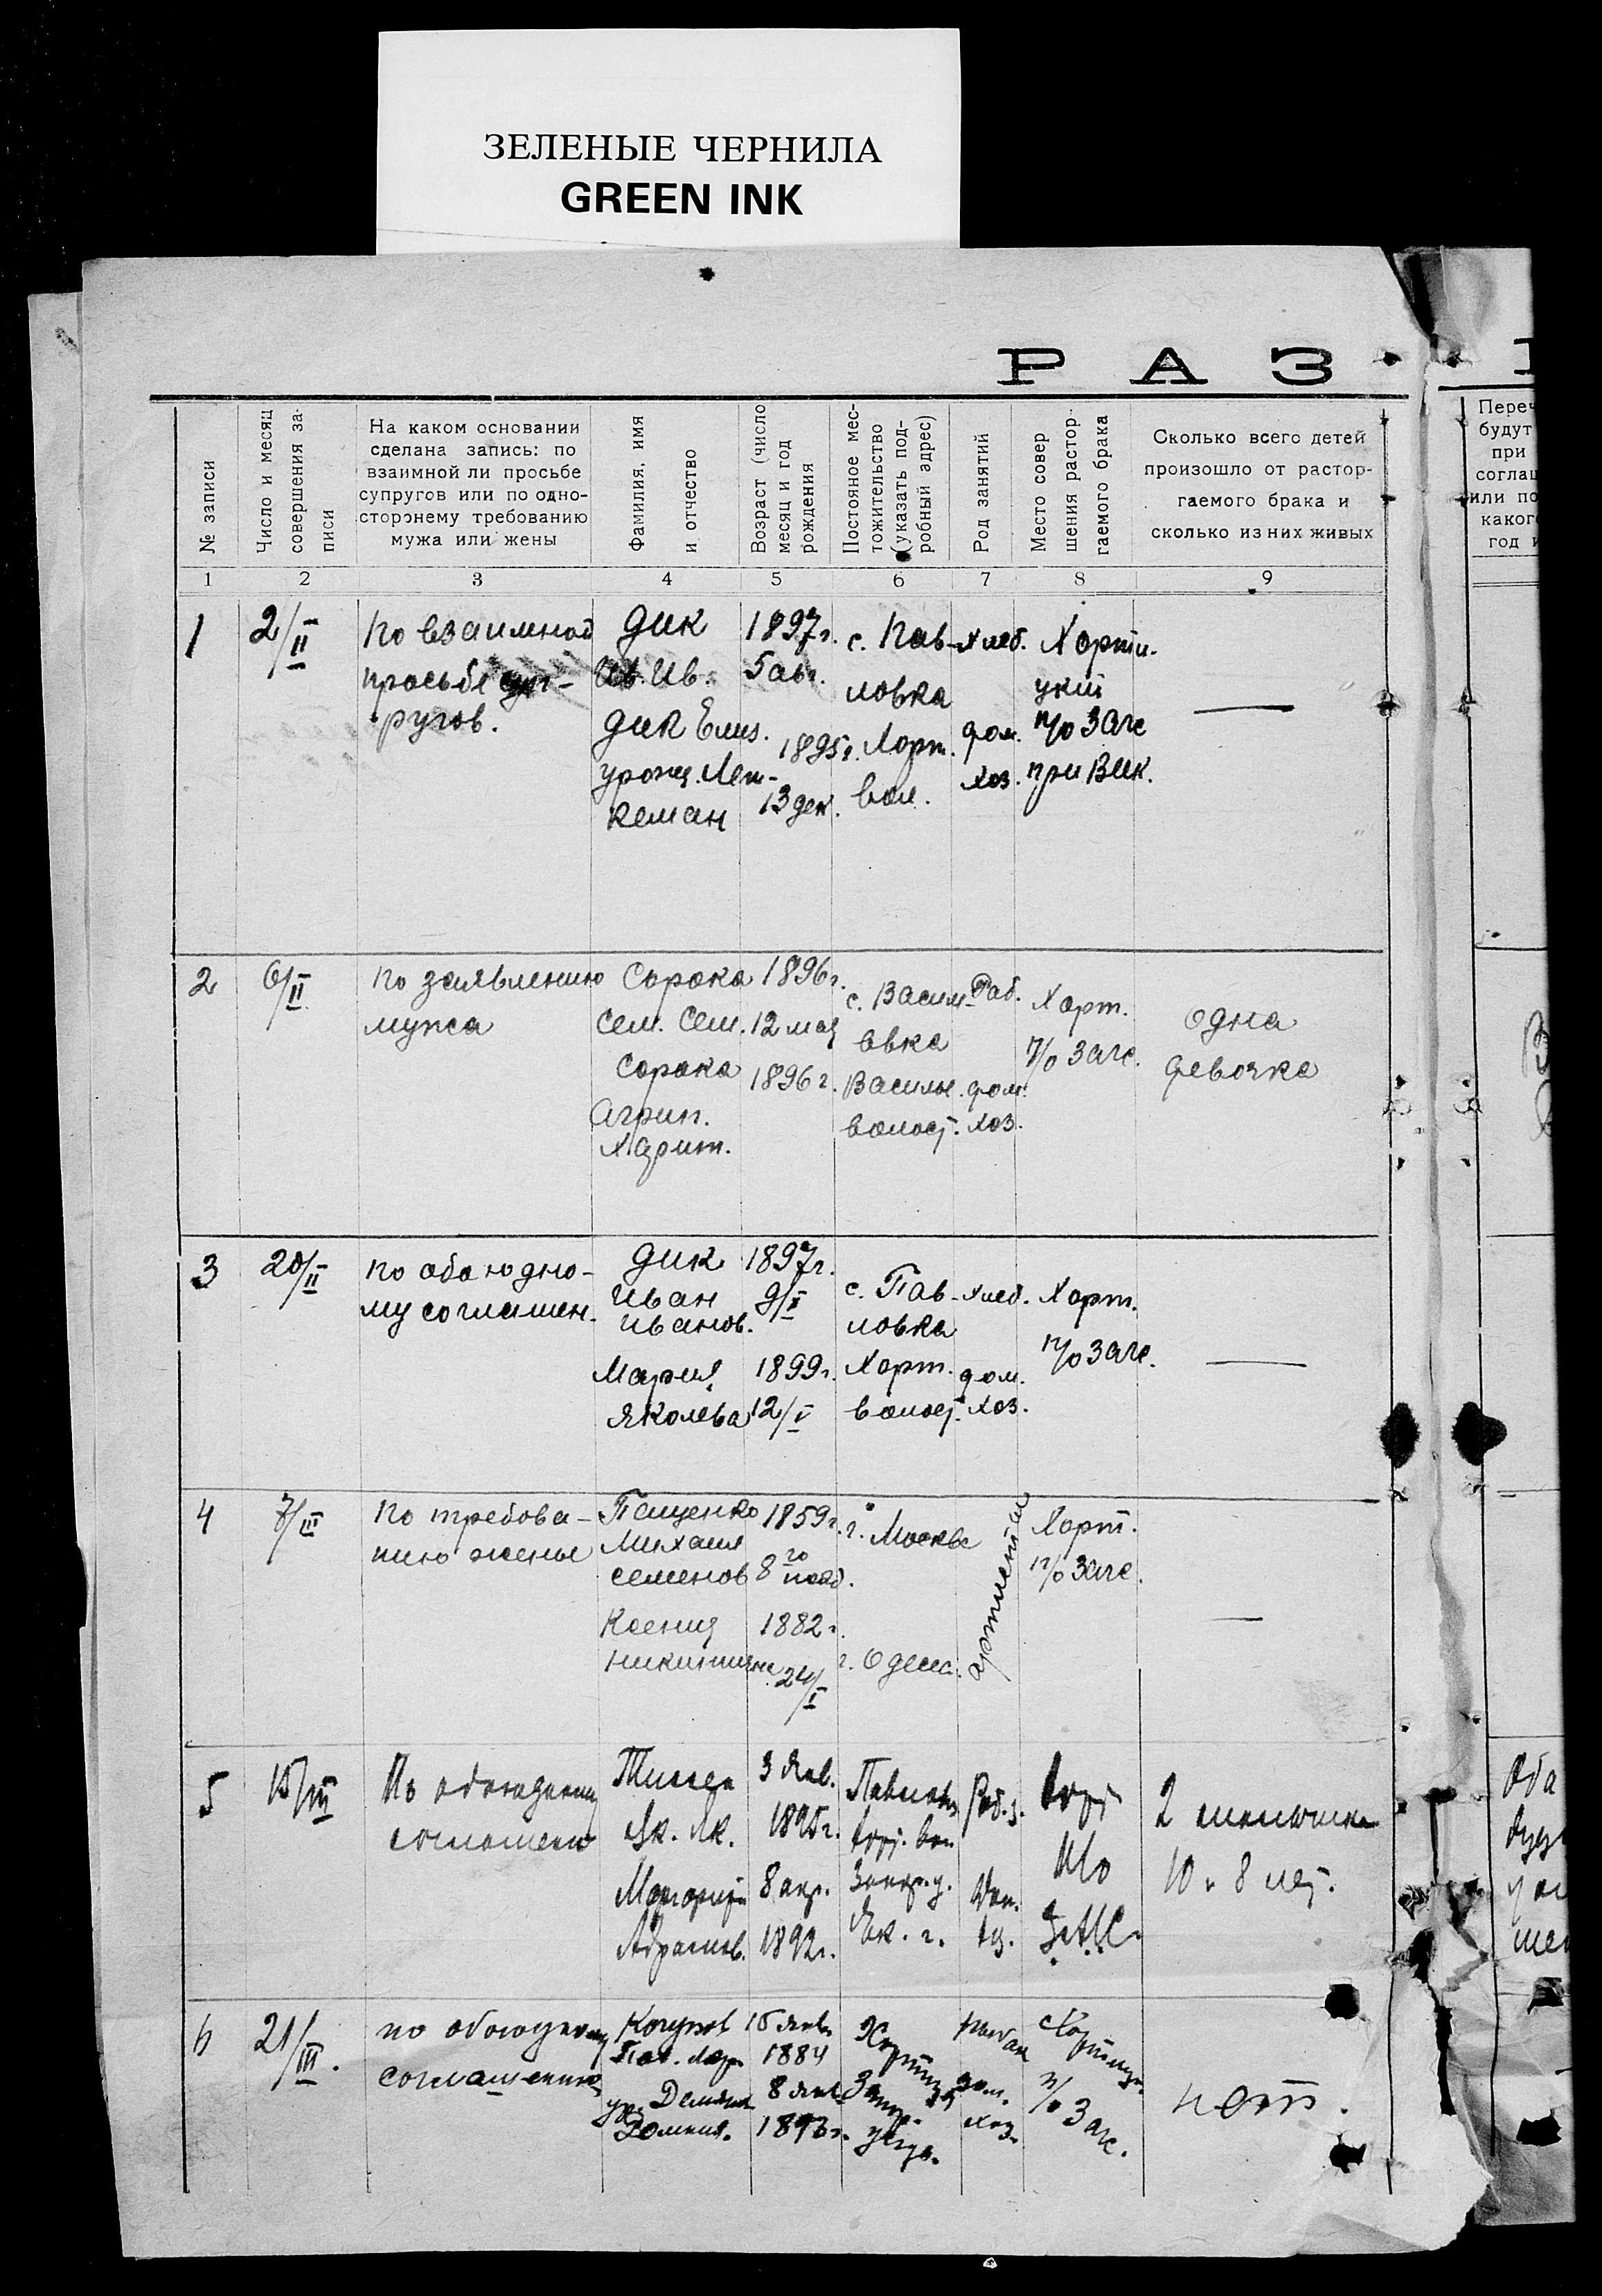 ЗЕЛЕНЫЕ ЧЕРНИЛА
GREEN INK
РАЗ
№ записи
Число и месяц
совершения за-
писи
На каком основании
сделана запись: по
взаимной ли просьбе
супругов или по одно-
стороннему требованию
мужа или жены
Фамилия, имя
и отчество
Возраст (число
месяц и год
рождения
Постояное мес-
тожительство
(указать под-
робный адрес)
Род занятий
Место совер
шения растор-
гаемого брака
Сколько всего детей
произошло от растор-
гаемого брака и
сколько из них живых
Переч
будут
при
соглаш
или по
каког
год и
1 2 3 4 5 6 7 8 9
1
2/II
По взаимной
просьбе суп-
ругов.
Дик
Ив. Ив.
Дик Елиз.
урожд. Лет-
кеман
1897г.
5 авг.
1895г.
13 дек.
с. Пав-
ловка
Хорт.
вол.
хлеб.
дом.
хоз.
Хорти-
цкий
п/о Загс
при Вик.
—
2
6/II
По заявлению
мужа
Сорока
Сем. Сем.
Сорока
Агрип.
Харит.
1896г.
12 мая
1896г.
с. Васил-
евка
Василье.
волост.
Раб.
дом.
хоз.
Хорт.
п/о Загс.
одна
девочка
3
20/II
По обоюдно-
му соглашен.
Дик
Иван
Иванов.
Мария
Яколева
1897г.
9/X
1899г.
12/V
с. Пав-
ловка
Хорт.
волост.
хлеб.
дом.
хоз.
Хорт.
п/о Загс.
—
4
7/III
По требова-
нию жены
Пащенко
Михаил
Семенов
Ксения
Никитична
1859г.
8го нояб.
1882г.
24/I
г. Москва
г. Одесса.
артисты
Хорт.
п/о Загс.
—
5
15/III
По обоюдному
соглашен
Тиссен
Як. Як.
Маргарита
Абрамов.
3 Янв.
1895г.
8 апр.
1892г.
Павловка
Хорт. вол.
Запор. у.
Ек. г.
Раб.
Дом.
хоз.
Хорт
п/о
ЗАГС.
2 мальчика
10 и 8 лет.
6
21/III.
по обоюдному
соглашению
Пав. Лар.
15 Янв.
1884
8 Янв
1893г.
Запор.
уезда.
дом.
хоз.
п/о Загс.
нет.
Оба